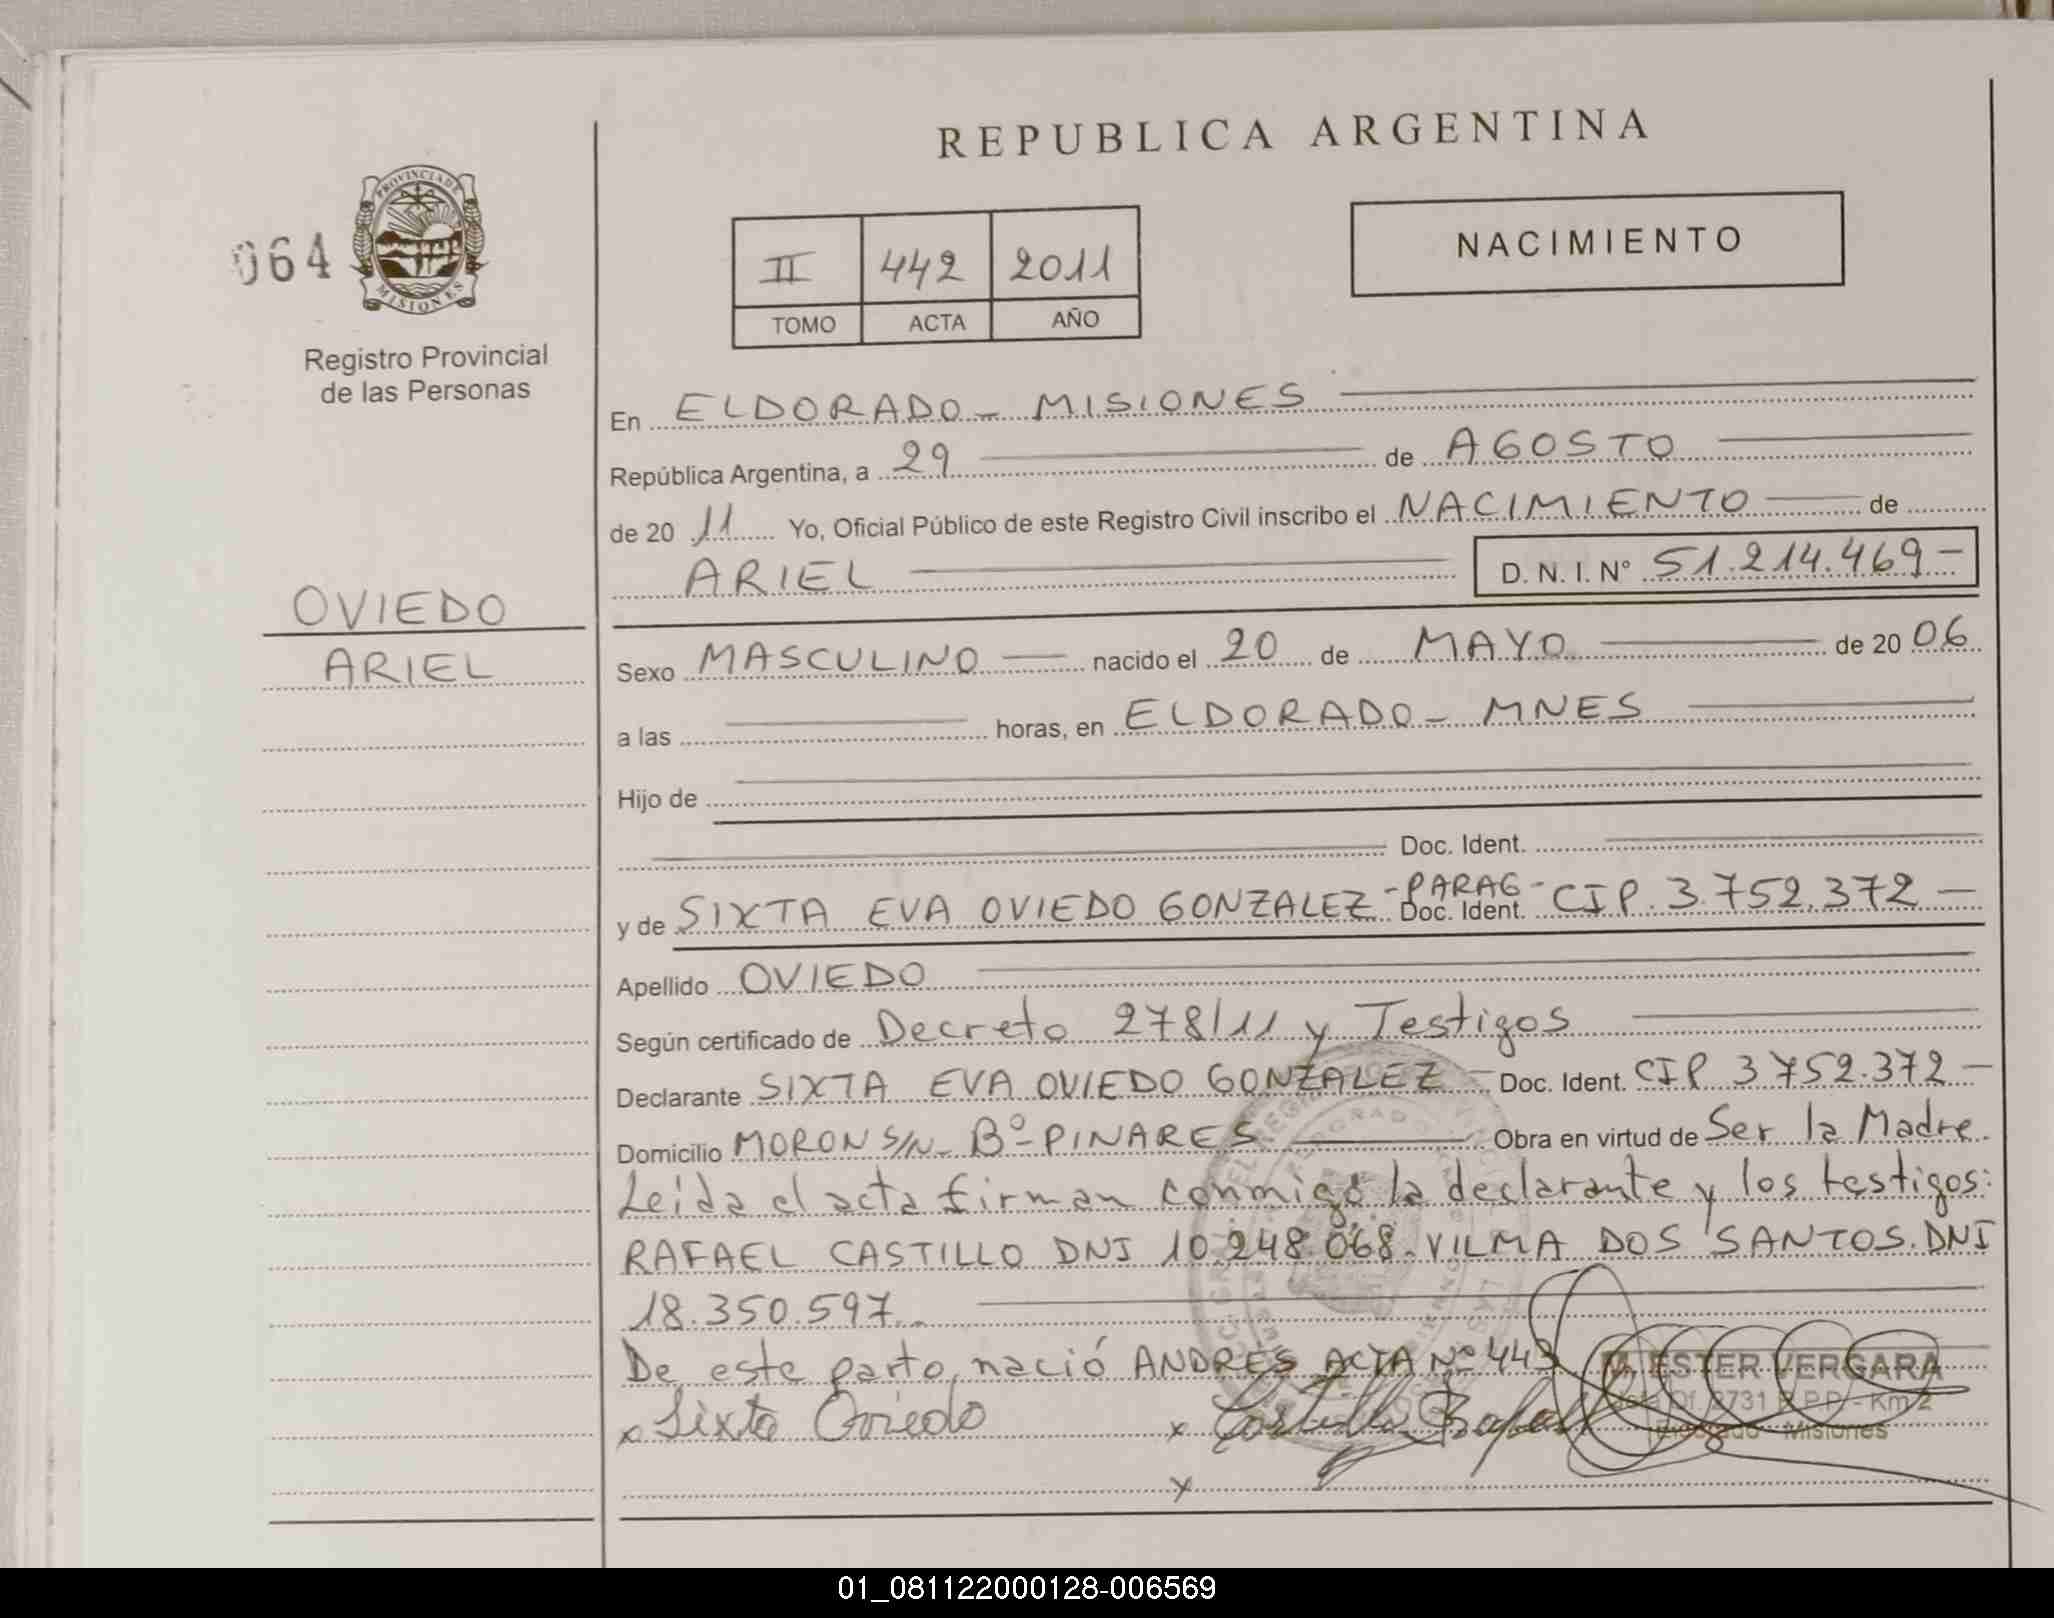 REPUBLICA ARGENTINA
064
PROVINCIA DE
MISIONES
Registro Provincial
de las Personas
II 442 2011
TOMO ACTA AÑO
NACIMIENTO
En ELDORADO - MISIONES
República Argentina, a 29 de AGOSTO
de 20 11 Yo, Oficial Público de este Registro Civil inscribo el NACIMIENTO de
ARIEL D. N. I. N° 51.214.469-
OVIEDO
ARIEL
Sexo MASCULINO nacido el 20 de MAYO de 20 06
a las horas, en ELDORADO - MNES
Hijo de
Doc. Ident.
y de SIXTA EVA OVIEDO GONZALEZ -PARAG- Doc. Ident. CIP. 3.752.372-
Apellido OVIEDO
Según certificado de Decreto 278/11 y Testigos
Declarante SIXTA EVA OVIEDO GONZALEZ - Doc. Ident. CIP 3752.372-
Domicilio MORON S/N - Bº-PINARES Obra en virtud de Ser la Madre.
Leida el acta firman conmigo la declarante y los testigos:
RAFAEL CASTILLO DNI 10.248.068. VILMA DOS SANTOS. DNI
18.350.597.
De este parto nació ANDRES ACTA Nº 443
M. ESTER VERGARA
Jefe Of. 2731 R.P.P - Km 2
Eldorado - Misiones
x Sixta Oviedo x Castillo Rafael
x
01_081122000128-006569